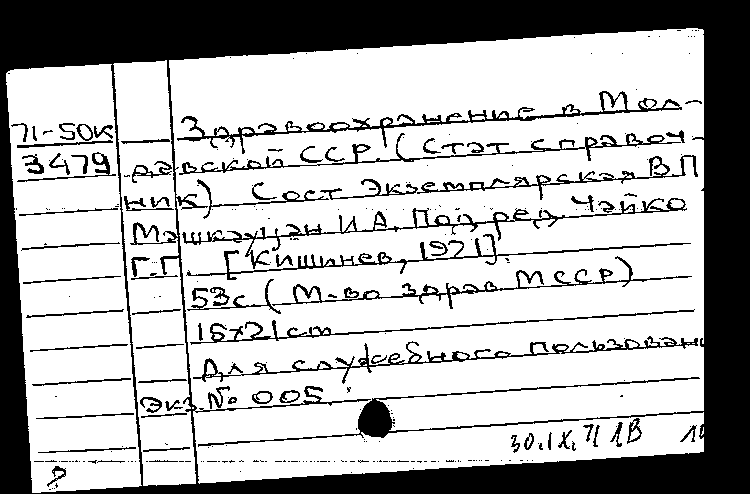 71-50к Здравоохранение в Мол-
3479 давской ССР. (Стат справоч-
ник) Сост Экземплярская В.П
Машкауцан И А. Под ред. Чайко
Г.Г. [Кишинев, 1971].
53с (М-во здрав МССР)
15х21cm
Для служебного пользован
Экз. № 005.
30.IX.71 1В